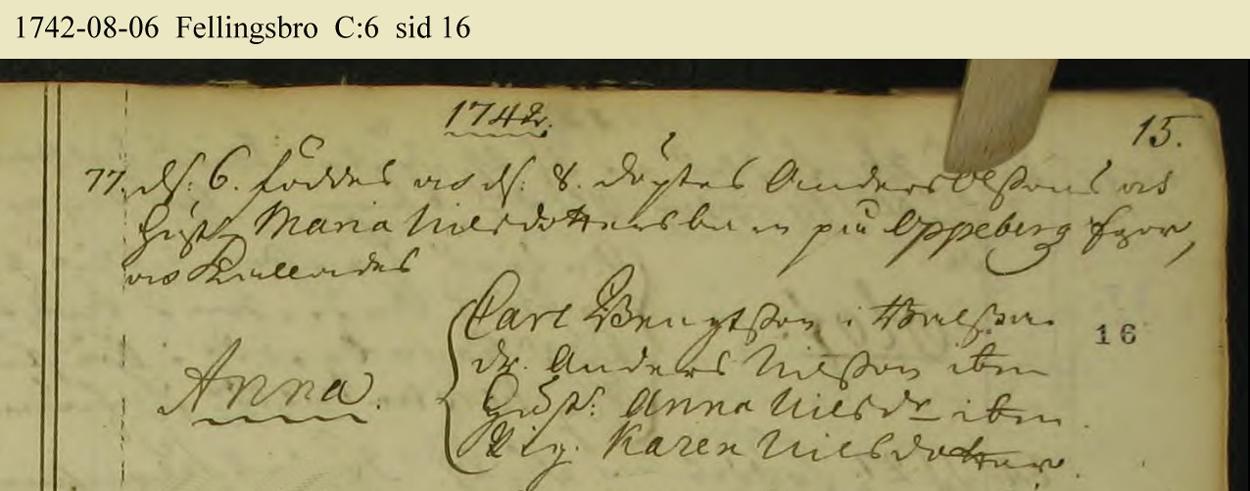 1742-08-06 Fellingsbro C:6 sid 16
1742.
15.
77. d. 6. föddes och d. 8. döptes Anders Olssons och
hust. Maria Nilsdotters barn på Oppeberg
och kallades
Carl Bengtsson i
16
dr. Anders Nilsson ibm
Anna.
Hust: Anna Nilsdr ibm
Pig. Karen Nilsdotter